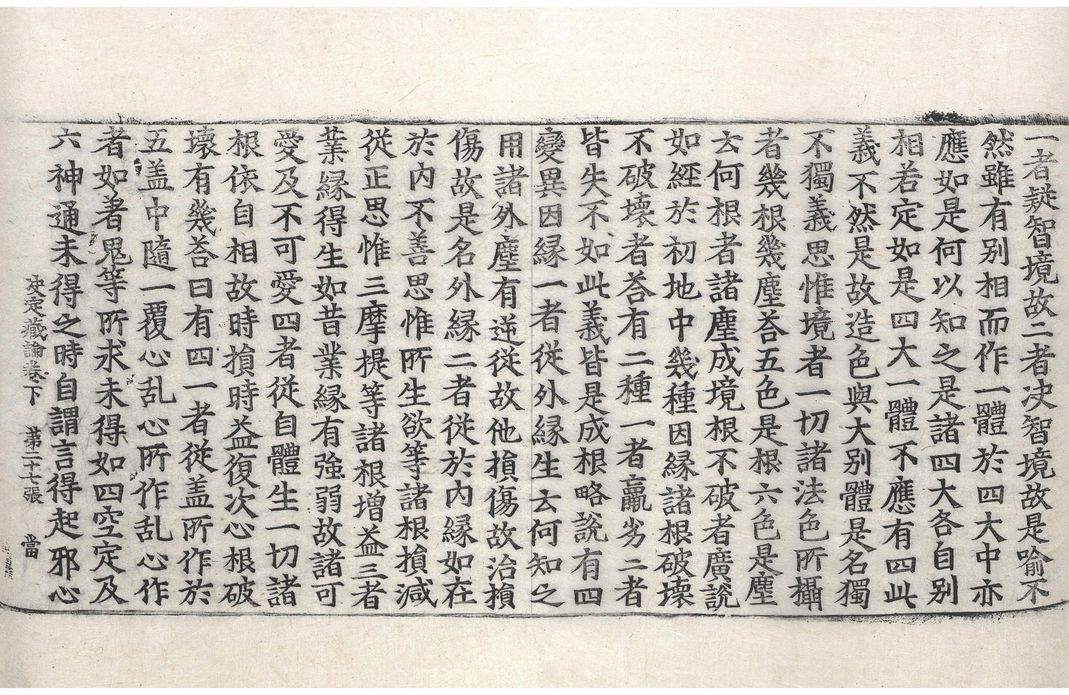 一者疑智境故二者决智境故是喻不
然雖有别相而作一體於四大中亦
應如是何以知之是諸四大各自别
相若定如是四大一體不應有四此
義不然是故造色與大别體是名獨
不獨義思惟境者一切諸法色所攝
者幾根幾塵荅五色是根六色是塵
去何根者諸塵成境根不破者廣説
如經於初地中幾種因緣諸根破壞
不破壞者荅有二種一者羸劣二者
皆失不如此義皆是成根略説有四
變異因緣一者從外緣生去何知之
用諸外塵有逆從故他損傷故治損
傷故是名外緣二者從於内緣如在
於内不善思惟所生欲等諸根損減
從正思惟三摩提等諸根增益三者
業緣得生如昔業緣有強弱故諸可
愛及不可愛四者從自體生一切諸
根依自相故時損時益復次心根破
壞有幾荅曰有四一者從盖所作於
五盖中隨一覆心乱心所作乱心作
者如著鬼等所求未得如四空定及
六神通未得之時自謂言得起邪心
决定藏論卷下 第二十七張 當